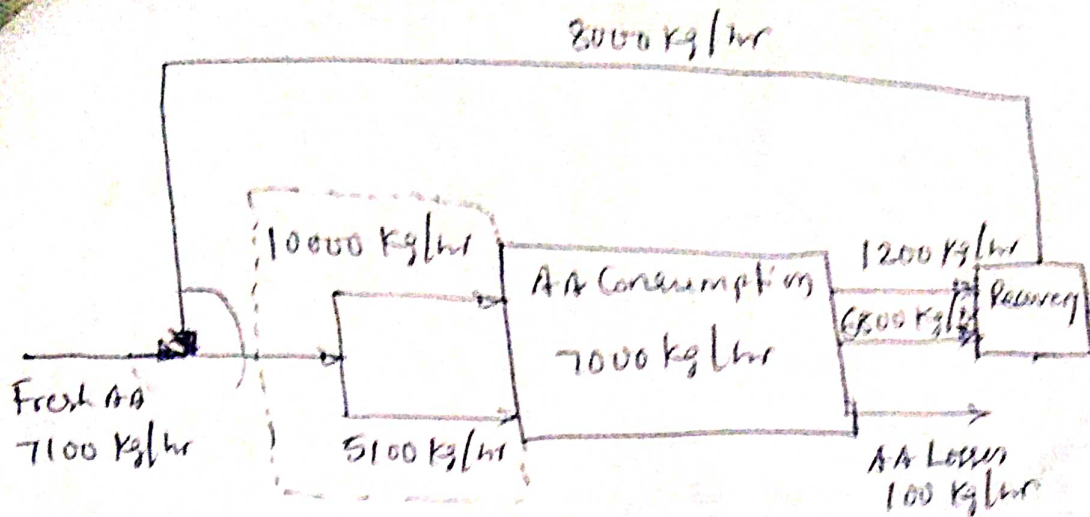 8000 kg/hr
10000 kg/hr
AA Consumption
7000 kg/hr
1200 kg/hr
6800 kg/
Recovery
Fresh AA
7100 kg/hr
5100 kg/hr
AA Losses
100 kg/hr